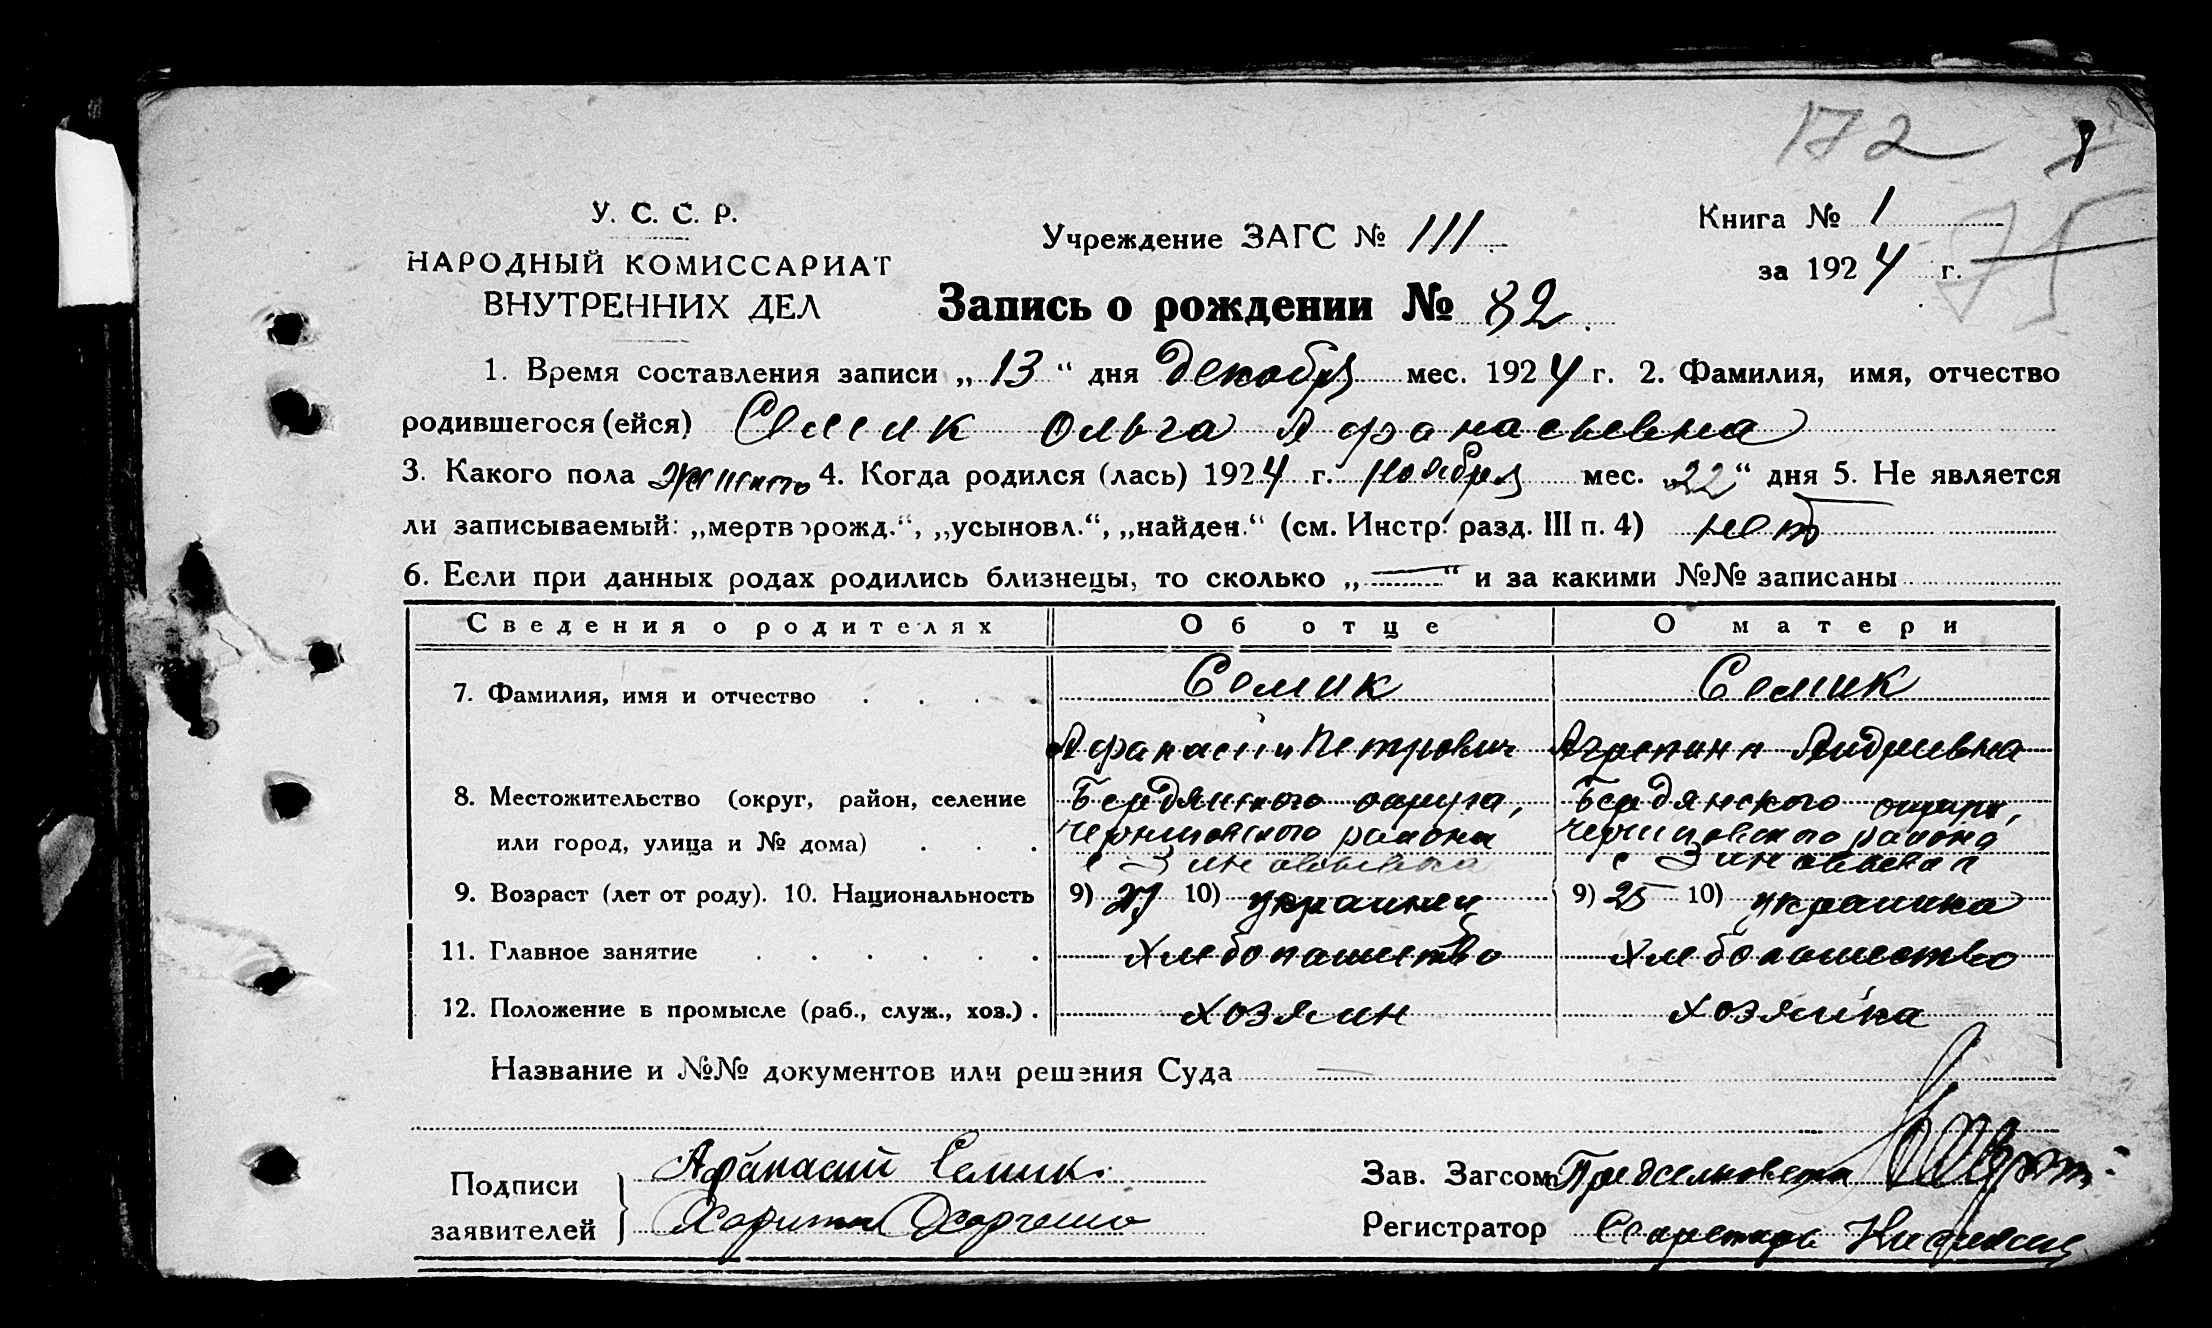 172
У. С. С. Р.
НАРОДНЫЙ КОМИССАРИАТ
ВНУТРЕННИХ ДЕЛ
Учреждение ЗАГС № 111
Книга № 1
за 1924 г.
75
Запись о рождении № 82
1. Время составления записи „13“ дня декабря мес. 1924 г. 2. Фамилия, имя, отчество
родившегося (ейся) Семик Ольга Афанасьевна
3. Какого пола женского 4. Когда родился (лась) 1924 г. ноября мес. „22“ дня 5. Не является
ли записываемый: „мертворожд.“, „усыновл.“, „найден.“ (см. Инстр. разд. III п. 4) нет
6. Если при данных родах родились близнецы, то сколько „—“ и за какими №№ записаны
Сведения о родителях Об отце О матери
7. Фамилия, имя и отчество Семик Семик
Афанасий Петрович Агрепина Андреевна
8. Местожительство (округ, район, селение Бердянского округа, Бердянского округа,
или город, улица и № дома) Черниговского района Черниговского района
с Зиновьевка с Зиновьевка
9. Возраст (лет от роду). 10. Национальность 9) 27 10) украинец 9) 25 10) украинка
11. Главное занятие хлебопашество хлебопашество
12. Положение в промысле (раб., служ., хоз.) хозяин хозяйка
Название и №№ документов или решения Суда —
Подписи заявителей
Афанасий Семик
Зав. Загсом Предсельсовета
Регистратор Секретарь